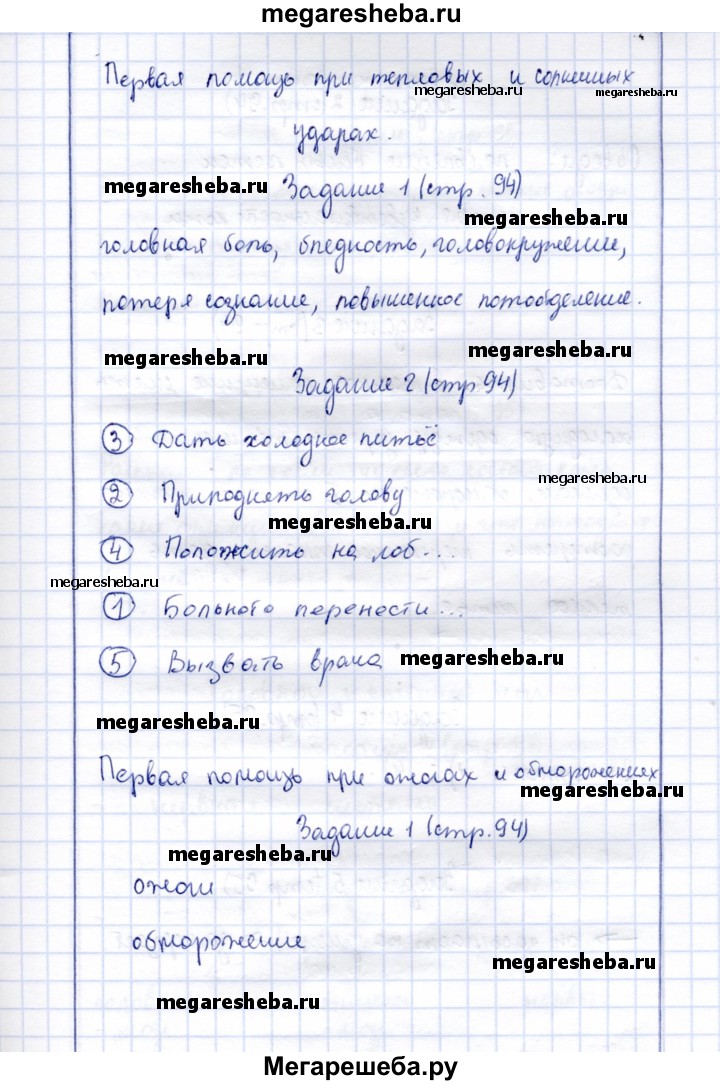 megaresheba.ru
Первая помощь при тепловых и солнечных
megaresheba.ru
megaresheba.ru
ударах.
megaresheba.ru
Задание 1 (стр. 94)
megaresheba.ru
головная боль, бледность, головокружение,
потеря сознание, повышенное потообделение.
megaresheba.ru
megaresheba.ru
Задание 2 (стр 94)
③ Дать холодное питьё
megaresheba.ru
② Приподнять голову
megaresheba.ru
④ Положить на лоб...
megaresheba.ru
① Больного перенести...
⑤ Вызвать врача
megaresheba.ru
megaresheba.ru
Первая помощь при ожогах и обморожениях
megaresheba.ru
Задание 1 (стр. 94)
megaresheba.ru
ожоги
обморожение
megaresheba.ru
megaresheba.ru
Мегарешеба.ру